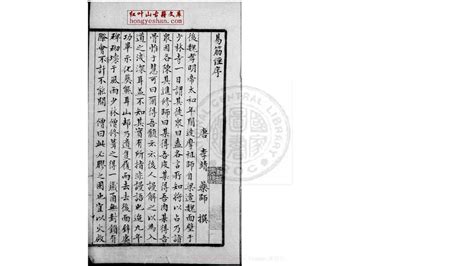 红叶山古籍文库
hongyeshan.com
易筋經序
唐 李靖 藥師 撰
後魏孝明帝太和年間達摩祖師自梁適魏面壁于
少林寺一日謂其徒衆曰盍各言所知將以占乃詣
衆因各陳其進修師曰某得吾皮某得吾肉某得吾
骨惟于慧可曰爾得吾髓云云後人漫解之以為入
道之淺深耳蓋不知其實有所指非漫語也迨九年
功畢示化葬熊耳山腳乃遺隻履而去去後面壁處
碑砌壞于風雨少林僧修葺之得一鐵函無封鎖有
際會百計不能開一僧曰此必膠之固也宜以火啟